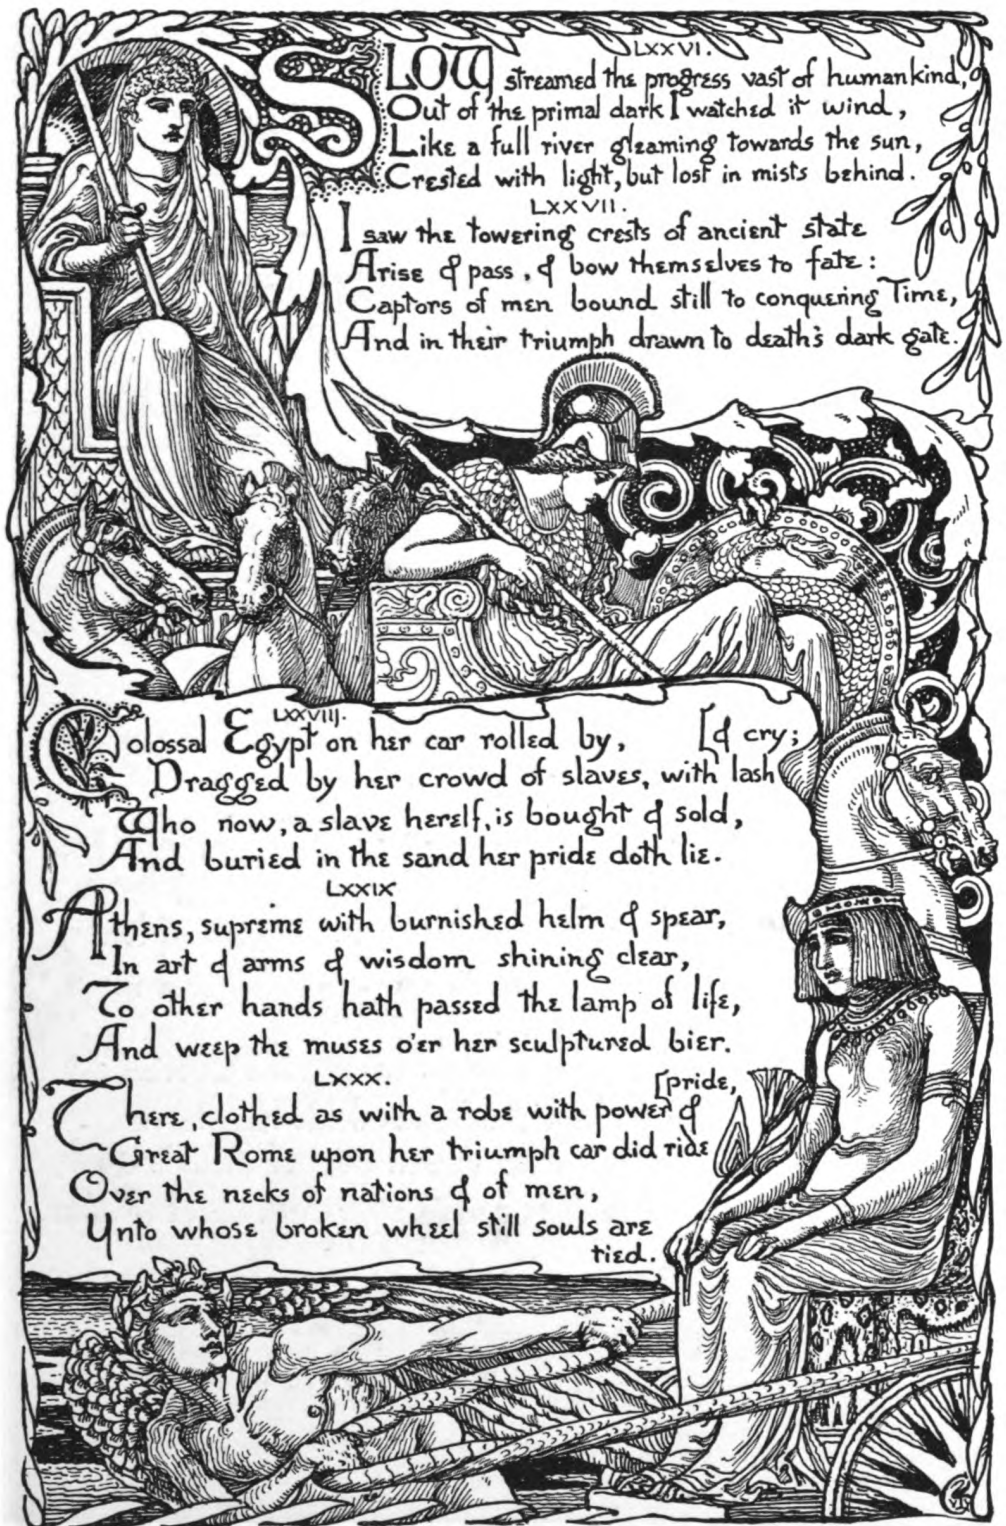 LXXVI.
SLOW streamed the progress vast of humankind,
Out of the primal dark I watched it wind,
Like a full river gleaming towards the sun,
Crested with light, but lost in mists behind.
LXXVII.
I saw the towering crests of ancient state
Arise & pass, & bow themselves to fate:
Captors of men bound still to conquering Time,
And in their triumph drawn to death's dark gate.
LXXVIIJ.
Colossal Egypt on her car rolled by, [& cry;
Dragged by her crowd of slaves, with lash
Who now, a slave herself, is bought & sold,
And buried in the sand her pride doth lie.
LXXIX
Athens, supreme with burnished helm & spear,
In art & arms & wisdom shining clear,
To other hands hath passed the lamp of life,
And weep the muses o'er her sculptured bier.
LXXX. [pride,
There, clothed as with a robe with power &
Great Rome upon her triumph car did ride
Over the necks of nations & of men,
Unto whose broken wheel still souls are
tied.